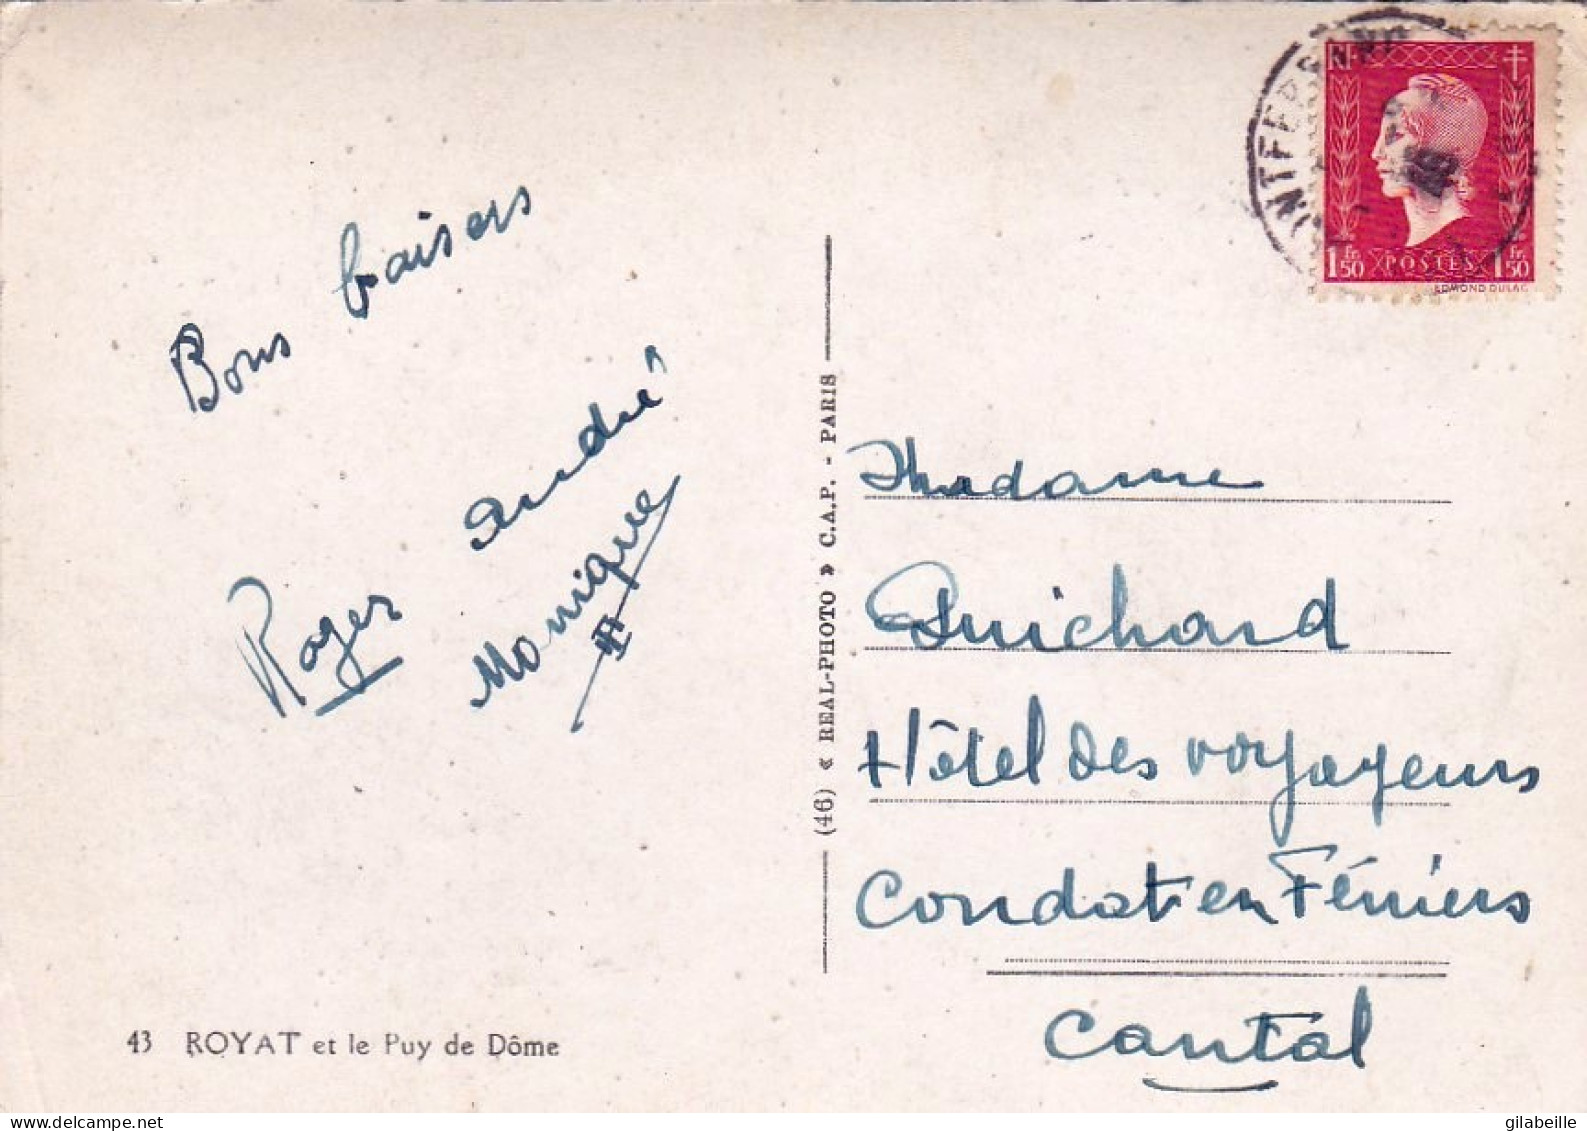 Bons baisers
Roger André
Monique
43 ROYAT et le Puy de Dôme
(46) « REAL-PHOTO » C.A.P. - PARIS
NTFERRAND
RF
1 Fr. 50 POSTES 1 Fr. 50
EDMOND DULAC
Madame
Guichard
Hôtel des voyageurs
Condat en Féniers
Cantal
gilabeille